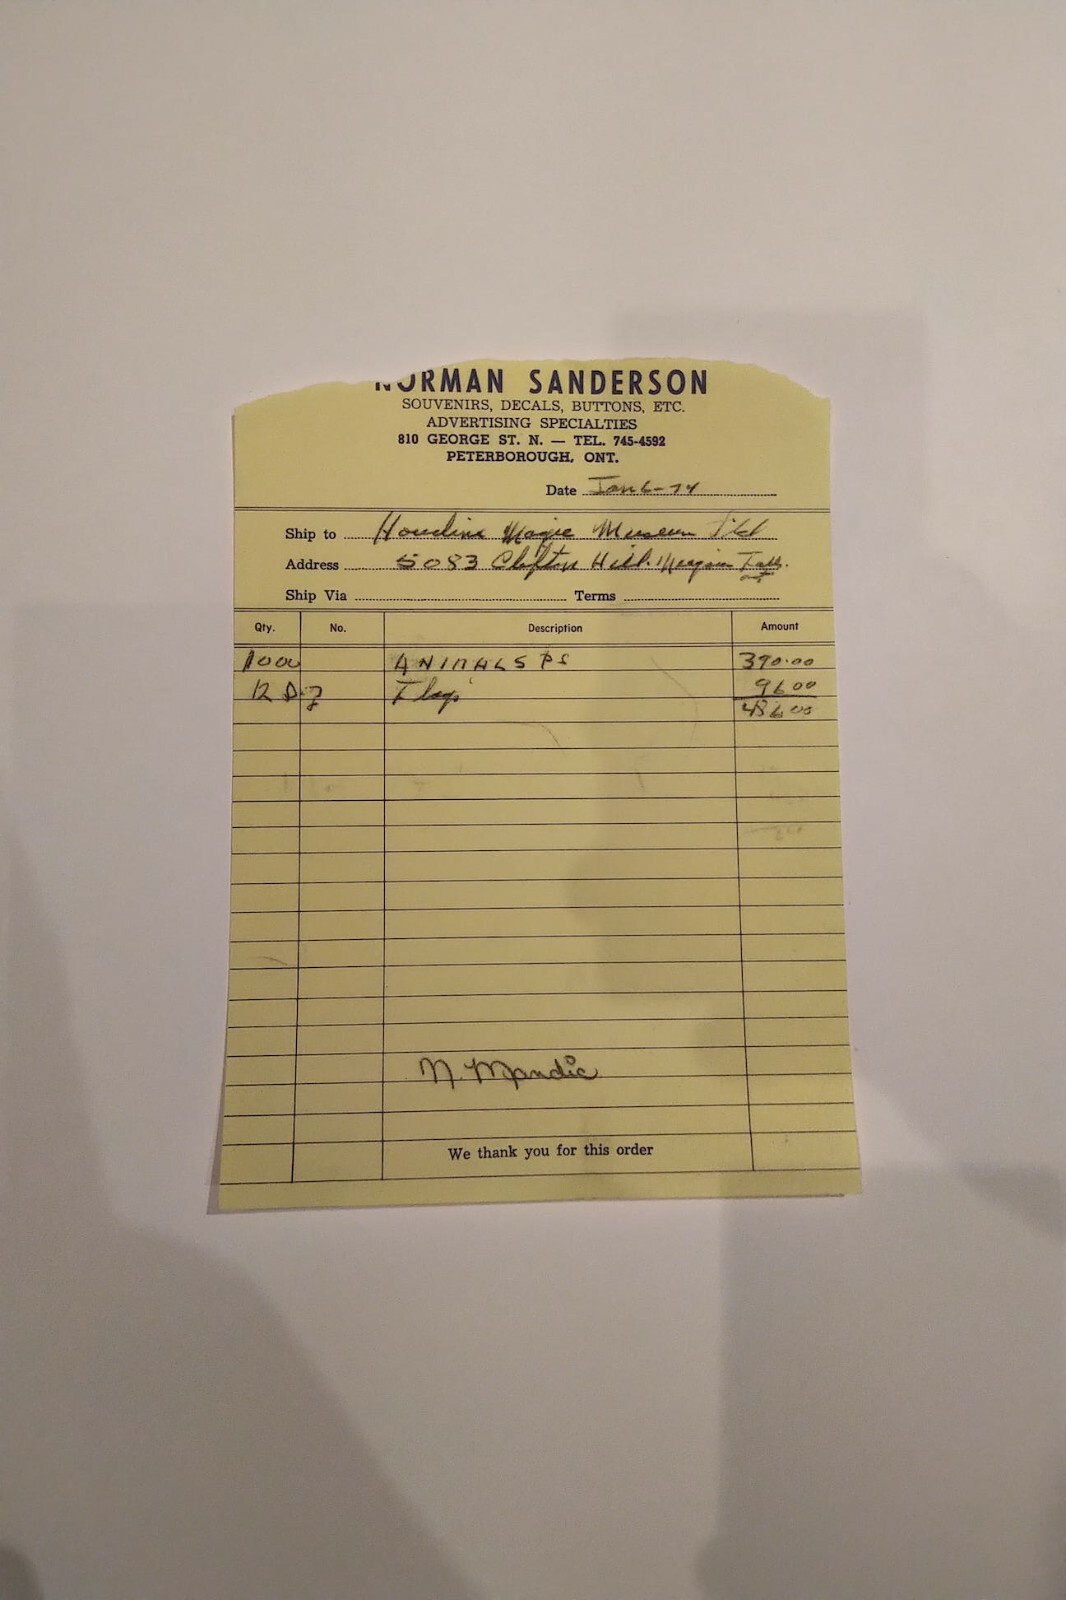 NORMAN SANDERSON
SOUVENIRS, DECALS, BUTTONS, ETC.
ADVERTISING SPECIALTIES
810 GEORGE ST. N. — TEL. 745-4592
PETERBOROUGH, ONT.
Date Jan 6-74
Ship to Houdini Magic Museum Ltd
Address 5083 Clifton Hill. Niagara Falls.
Ont
Ship Via Terms
Qty. No. Description Amount
1000 ANIMALS PS 390.00
12 Dz Flags 96 00
486 00
N. Mandic
We thank you for this order